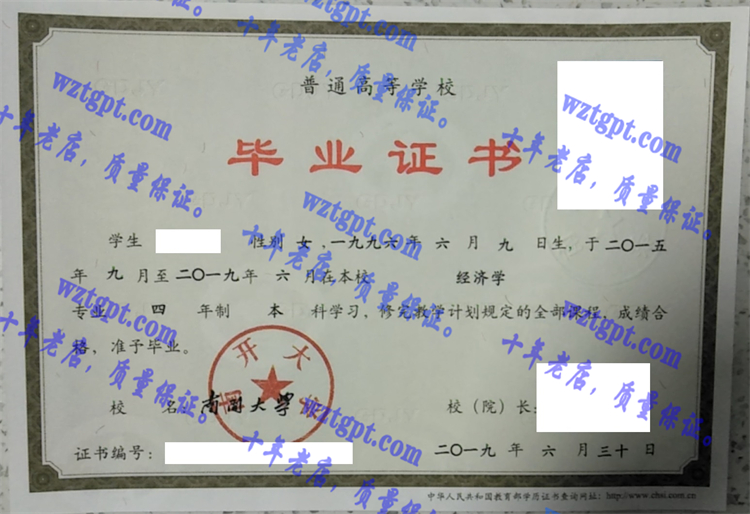 普通高等学校
毕业证书
学生 性别 女 ,一九九六年 六 月 九 日生,于二〇一五
年 九 月至二〇一九年 六 月在本校 经济学
专业 四 年制 本 科学习,修完教学计划规定的全部课程,成绩合
格,准予毕业。
校 名: 南开大学
校(院)长:
证书编号:
二〇一九 年 六 月 三十 日
中华人民共和国教育部学历证书查询网址:http://www.chsi.com.cn
南开大学
wztgpt.com
十年老店,质量保证。
wztgpt.com
十年老店,质量保证。
wztgpt.com
十年老店,质量保证。
wztgpt.com
十年老店,质量保证。
wztgpt.com
十年老店,质量保证。
wztgpt.com
十年老店,质量保证。
wztgpt.com
十年老店,质量保证。
wztgpt.com
十年老店,质量保证。
wztgpt.com
十年老店,质量保证。